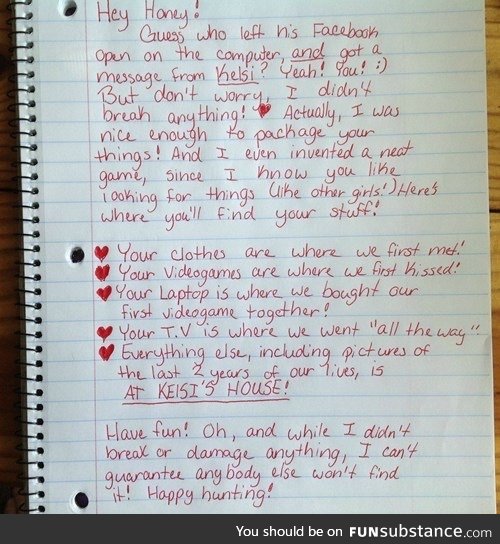 Hey Honey!
Guess who left his Facebook
open on the computer, and got a
message from Kelsi? Yeah! You! :)
But don't worry, I didn't
break anything! ♥ Actually, I was
nice enough to package your
things! And I even invented a neat
game, since I know you like
looking for things (like other girls!) Here's
where you'll find your stuff!
♥ Your clothes are where we first met!
♥ Your Videogames are where we first kissed!
♥ Your Laptop is where we bought our
first videogame together!
♥ Your T.V is where we went "all the way"
♥ Everything else, including pictures of
the last 2 years of our lives, is
AT KELSI'S HOUSE!
Have fun! Oh, and while I didn't
break or damage anything, I can't
guarantee anybody else won't find
it! Happy hunting!
You should be on FUNsubstance.com